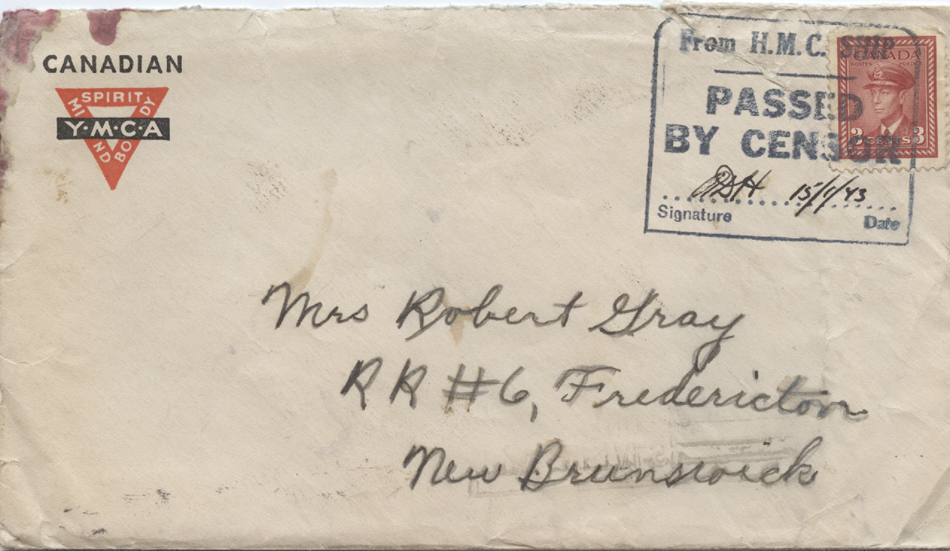 CANADIAN
SPIRIT
MIND
BODY
Y·M·C·A
From H.M.C. SHIP
PASSED
BY CENSOR
15/1/43
Signature Date
CANADA
3 CENTS 3
Mrs Robert Gray
RR #6, Fredericton
New Brunswick